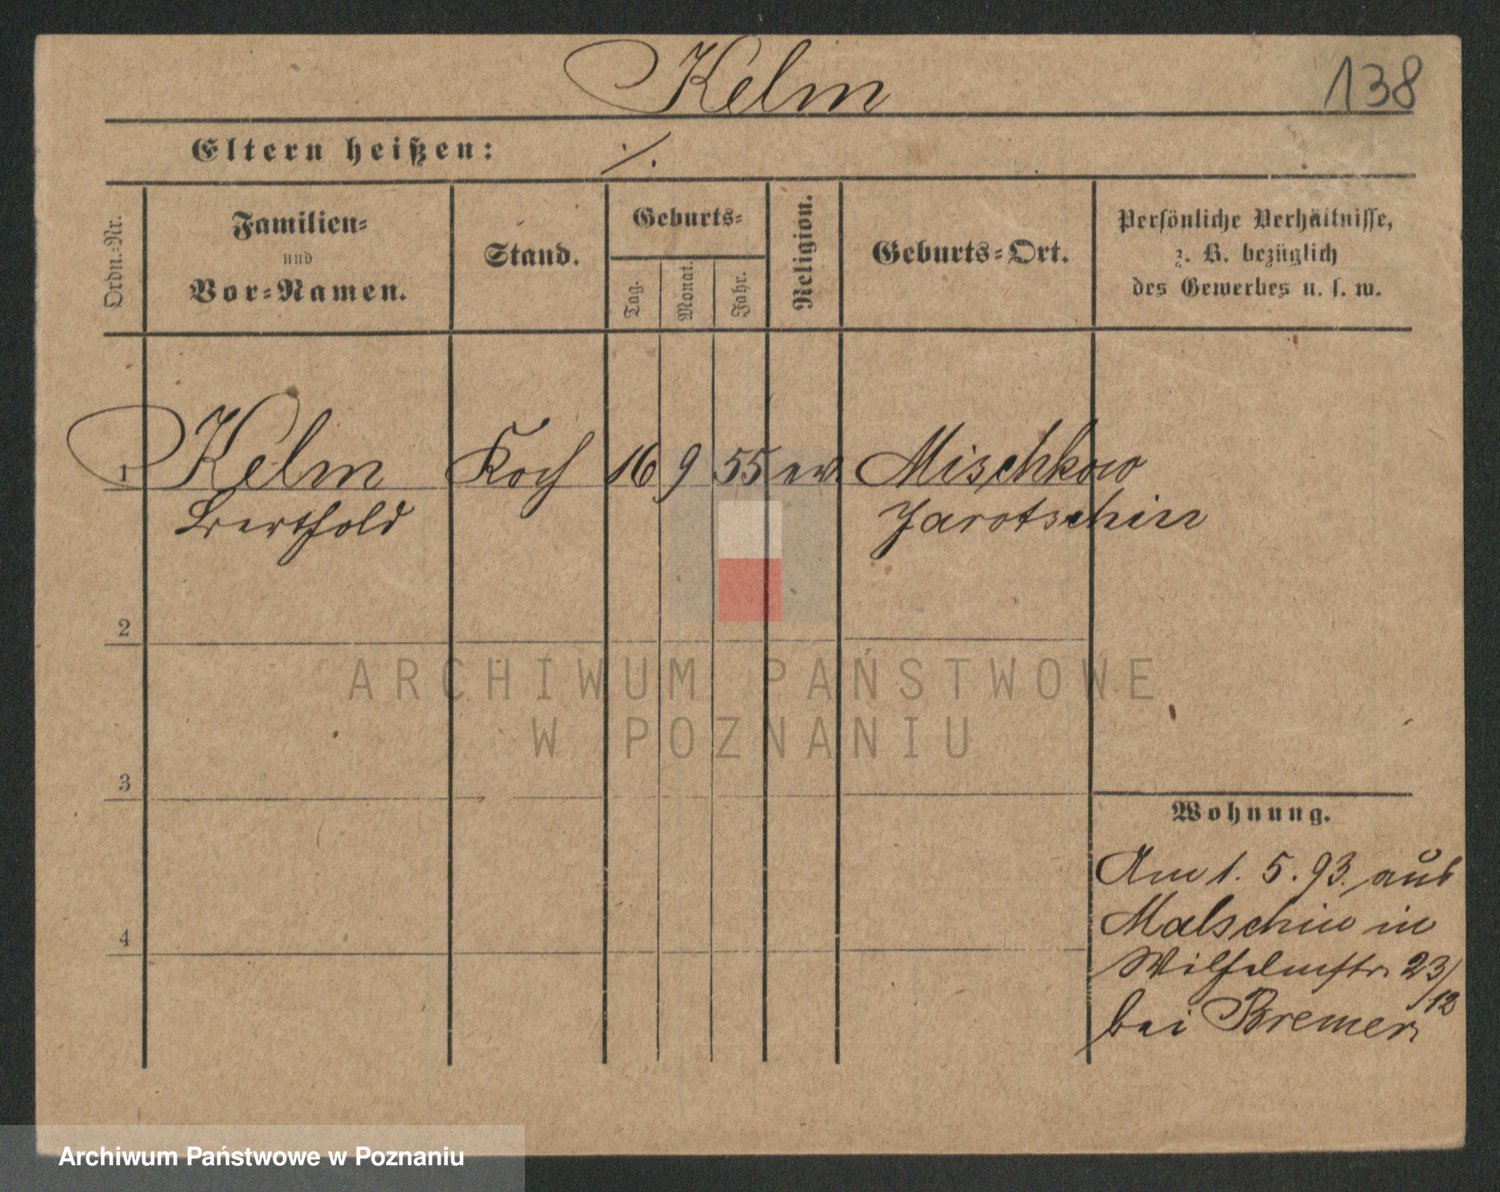 Kelm
138
Eltern heißen: ·/.
Ordn.=Nr.
Familien=
und
Vor=Namen.
Stand.
Geburts=
Tag.
Monat.
Jahr.
Religion.
Geburts=Ort.
Persönliche Verhältnisse,
z. B. bezüglich
des Gewerbes u. s. w.
1 Kelm Koch 16 9 55 ev. Mischkow
Berthold Jarotschin
2
3
4
Wohnung.
Am 1. 5. 93. aus
Malschin in
Wilhelmstr. 23/12
bei Bremer
ARCHIWUM PAŃSTWOWE
W POZNANIU
Archiwum Państwowe w Poznaniu